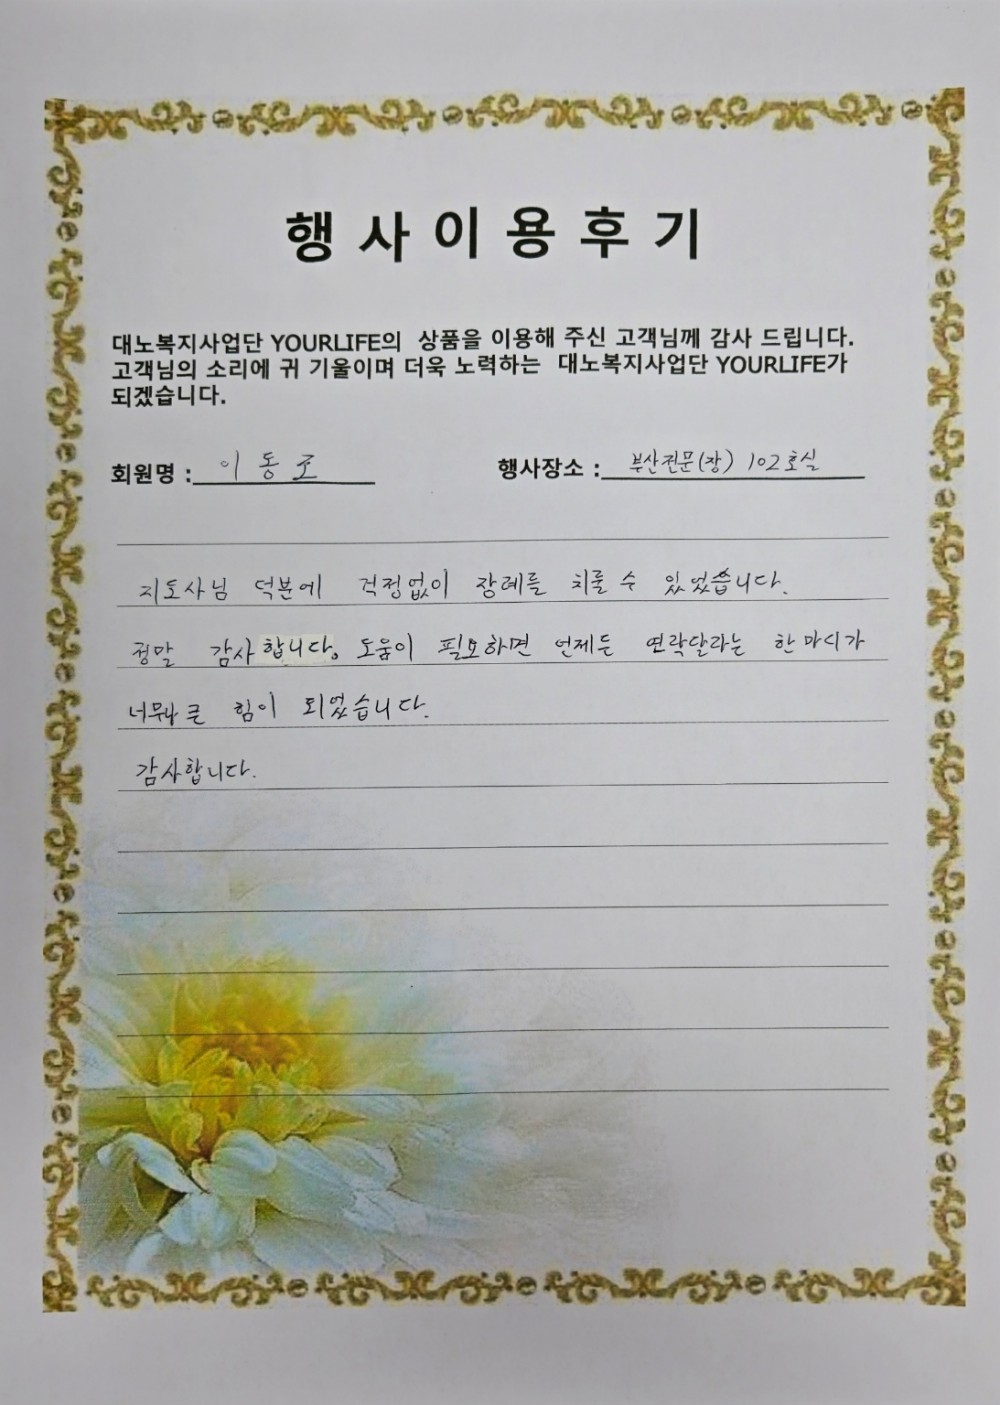 행사이용후기
대노복지사업단 YOURLIFE의 상품을 이용해 주신 고객님께 감사 드립니다.
고객님의 소리에 귀 기울이며 더욱 노력하는 대노복지사업단 YOURLIFE가
되겠습니다.
회원명 : 이동로 행사장소 : 부산전문(장) 102호실
지도사님 덕분에 걱정없이 장례를 치룰 수 있었습니다.
정말 감사합니다. 도움이 필요하면 언제든 연락달라는 한마디가
큰 힘이 되었습니다.
감사합니다.